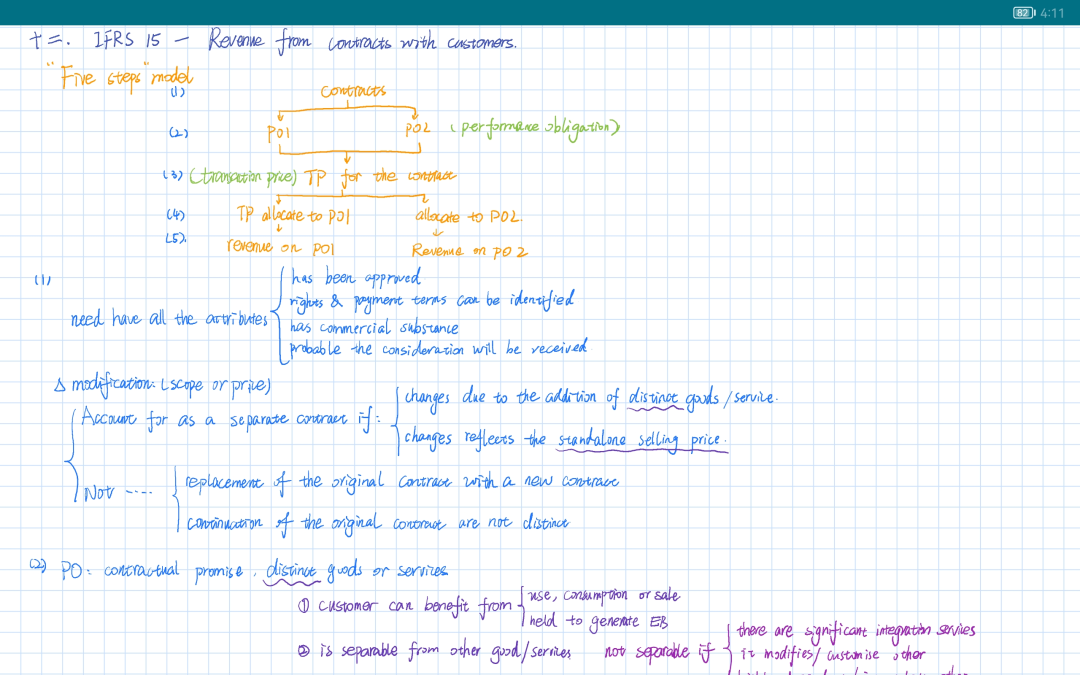 82 4:11
十二. IFRS 15 — Revenue from contracts with customers.
"Five steps" model
(1) Contracts
(2) PO1 PO2 (performance obligation)
(3) (transaction price) TP for the contract
(4) TP allocate to PO1 allocate to PO2.
(5). revenue on PO1 Revenue on PO2
(1)
has been approved
rights & payment terms can be identified
need have all the attributes
has commercial substance
probable the consideration will be received
Δ modification: (scope or price)
changes due to the addition of distinct goods/service.
Account for as a separate contract if:
changes reflects the standalone selling price.
replacement of the original contract with a new contract
Not ....
continuation of the original contract are not distinct
(2) PO: contractual promise. distinct goods or services
① customer can benefit from use, consumption or sale
held to generate EB
there are significant integration services
② is separable from other good/services not separable if it modifies/customise other